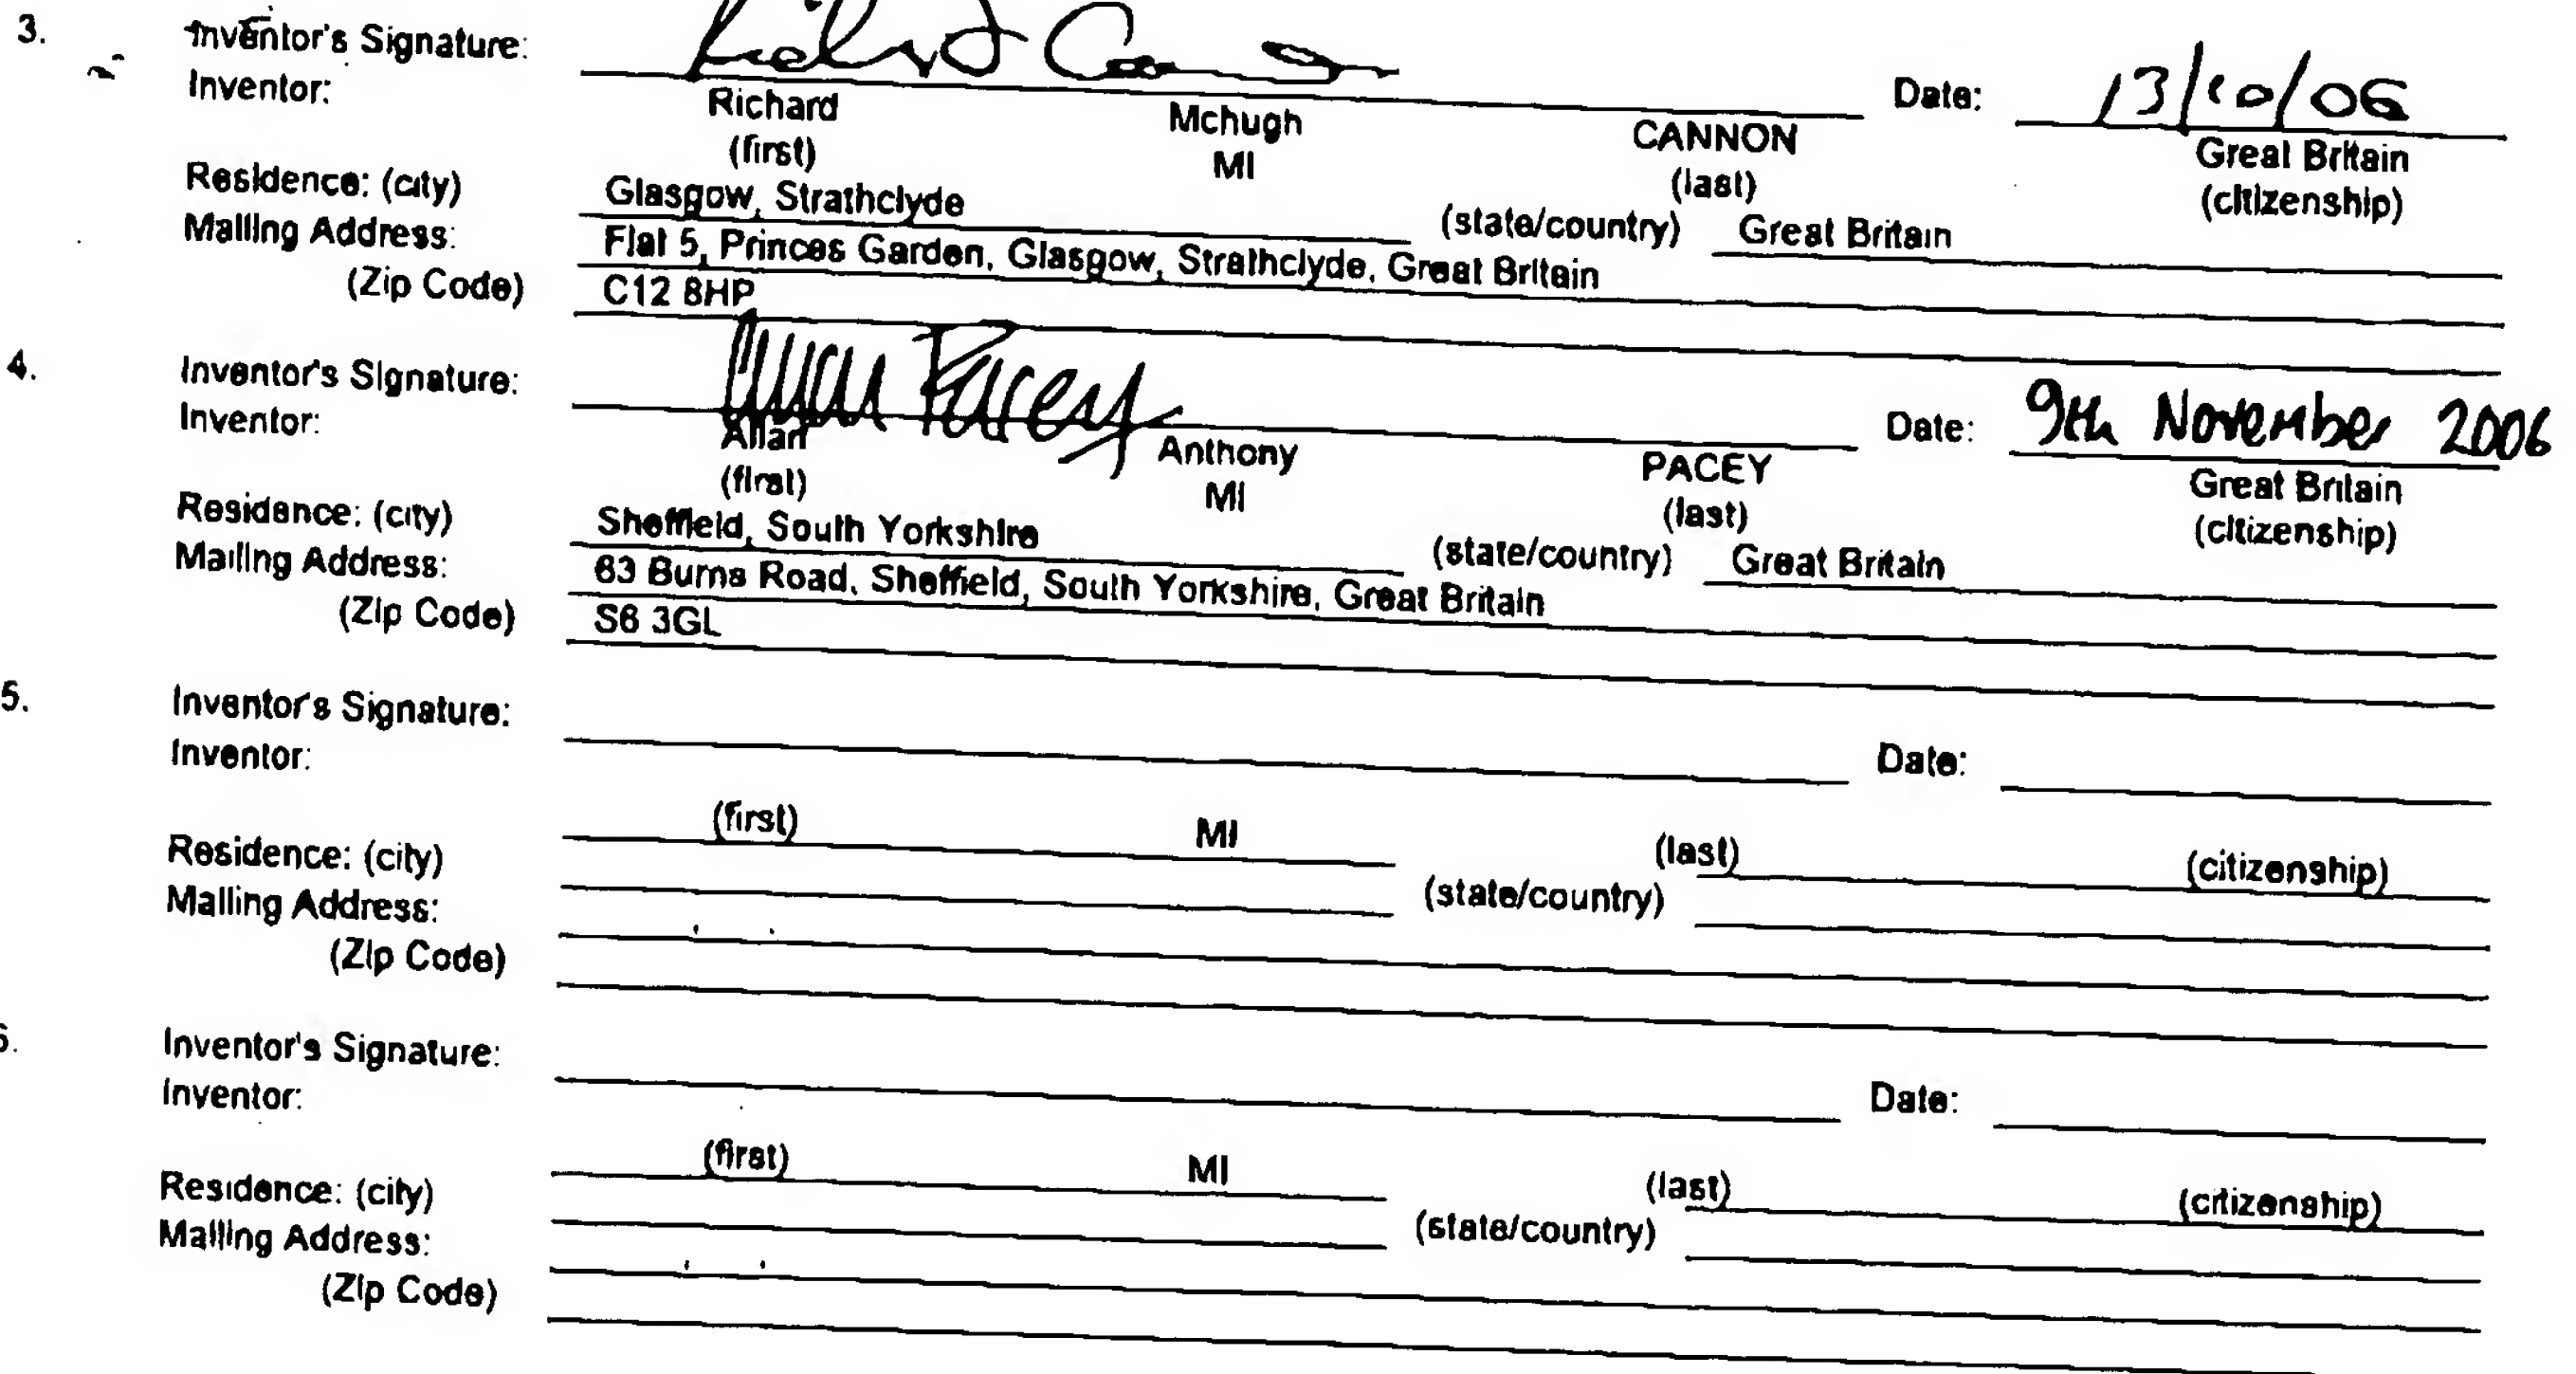 3. Inventor's Signature: Richard Cannon
Inventor: Date: 13/10/06
Richard Mchugh CANNON Great Britain
(first) MI (last) (citizenship)
Residence: (city) Glasgow, Strathclyde (state/country) Great Britain
Mailing Address: Flat 5, Princes Garden, Glasgow, Strathclyde, Great Britain
(Zip Code) C12 8HP
4. Inventor's Signature: Allan Pacey
Inventor: Date: 9th November 2006
Allan Anthony PACEY Great Britain
(first) MI (last) (citizenship)
Residence: (city) Sheffield, South Yorkshire (state/country) Great Britain
Mailing Address: 63 Burns Road, Sheffield, South Yorkshire, Great Britain
(Zip Code) S6 3GL
5. Inventor's Signature:
Inventor: Date:
(first) MI (last) (citizenship)
Residence: (city) (state/country)
Mailing Address:
(Zip Code)
6. Inventor's Signature:
Inventor: Date:
(first) MI (last) (citizenship)
Residence: (city) (state/country)
Mailing Address:
(Zip Code)